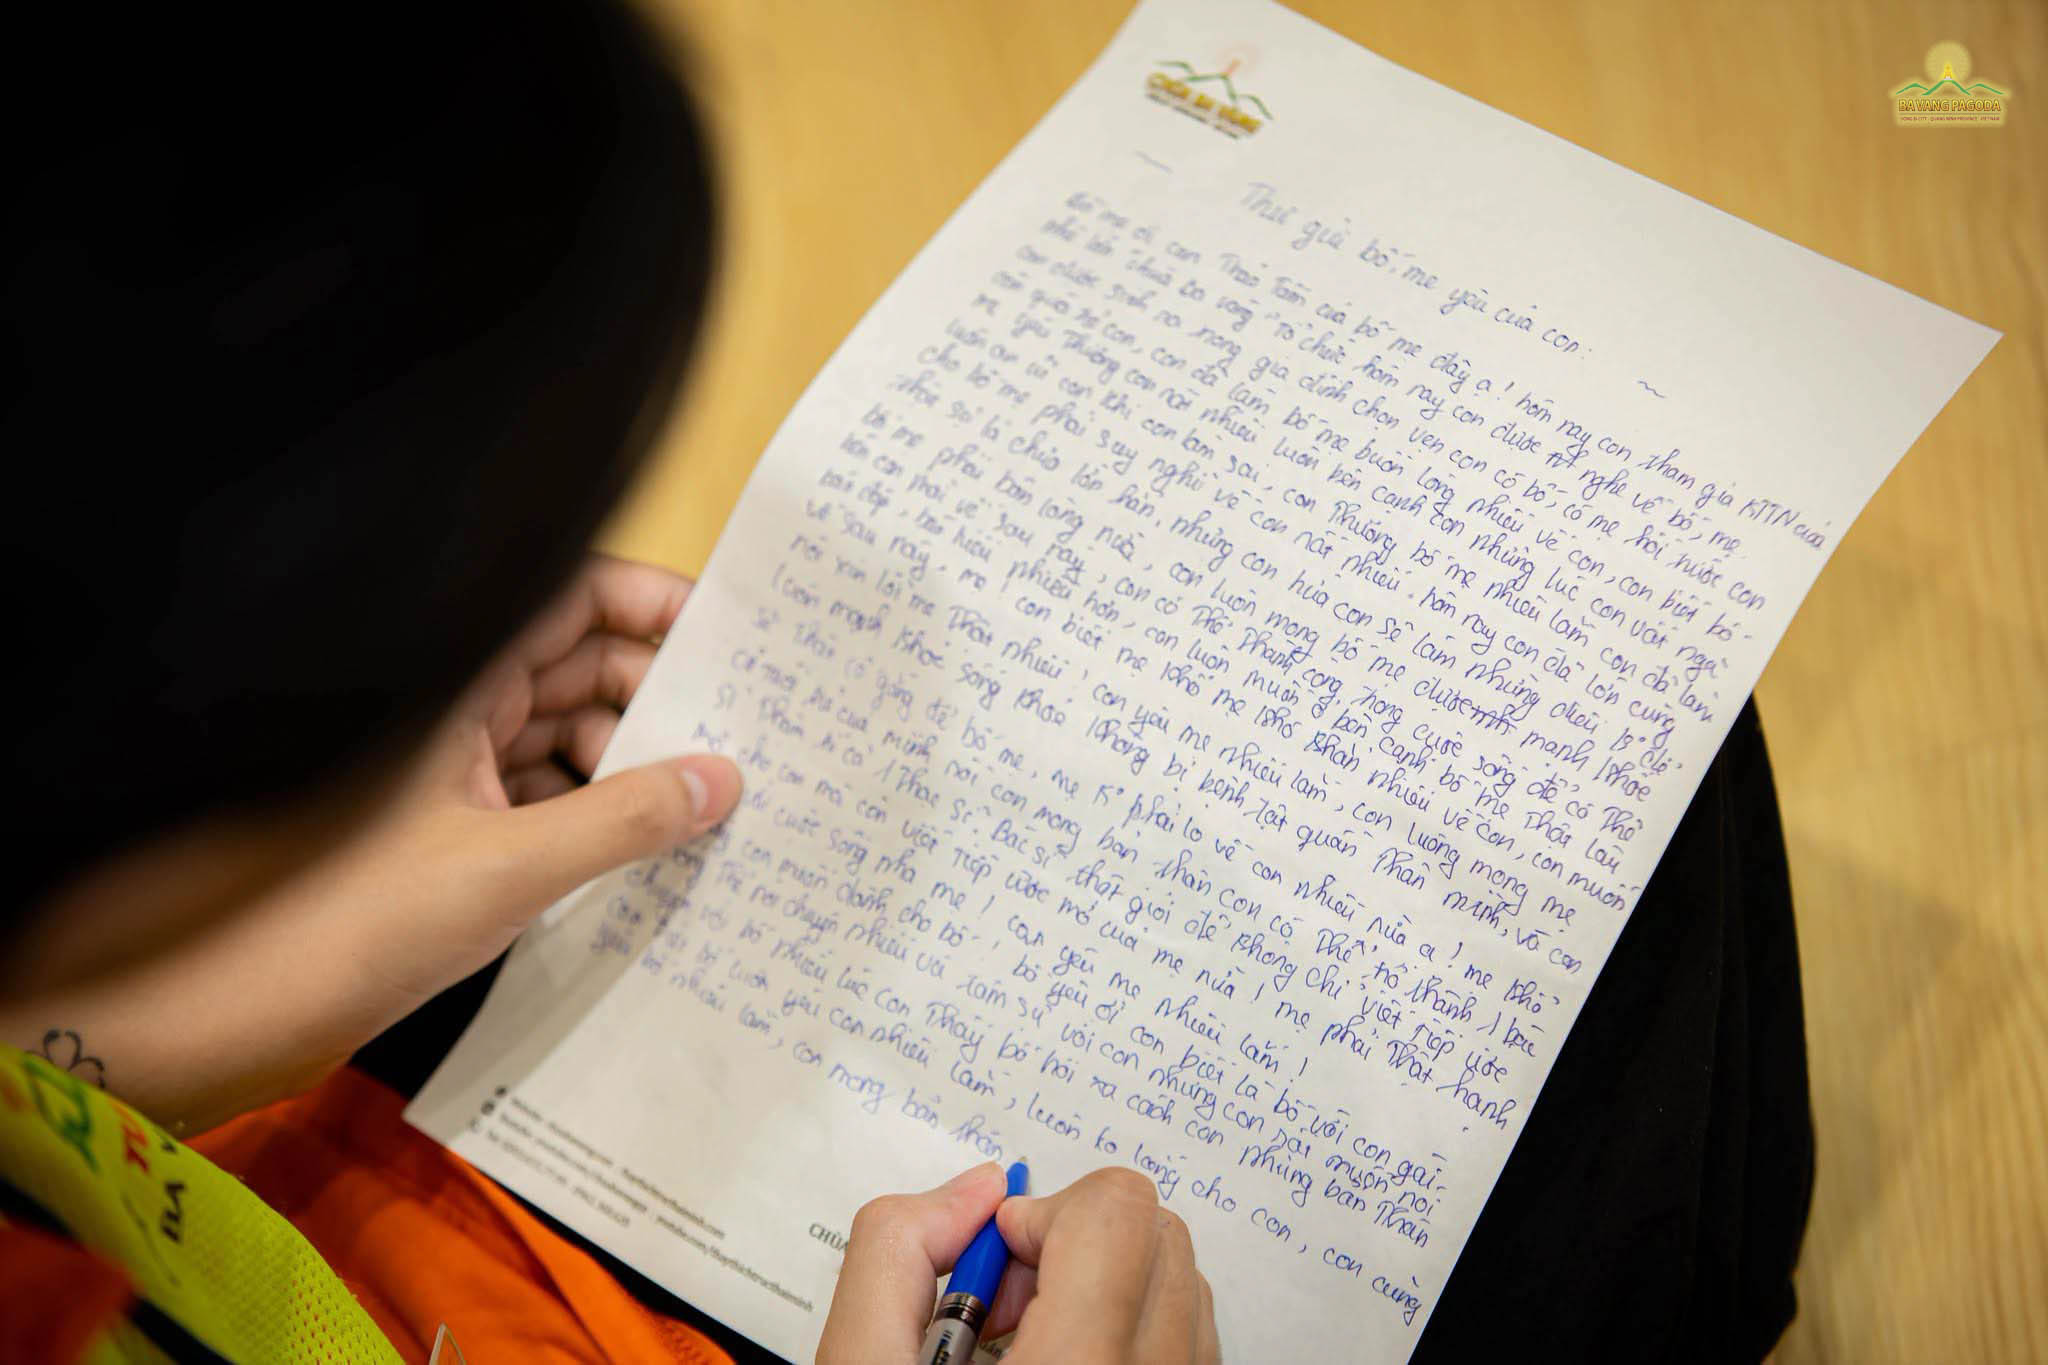 BA VANG PAGODA
UONG BI CITY - QUANG NINH PROVINCE - VIET NAM
CHÙA BA VÀNG
Thư gửi bố, mẹ yêu của con:
Bố mẹ ơi con Thảo Tâm của bố mẹ đây ạ! hôm nay con tham gia KTTN của
chùa ba vàng tổ chức hôm nay con được nghe về bố, mẹ.
con được sinh ra trong gia đình chọn vẹn con có bố, có mẹ hồi trước con
con, con đã làm bố mẹ buồn lòng nhiều về con, con biết bố
mẹ yêu thương con rất nhiều luôn bên cạnh con những lúc con vất ngã
luôn an ủi con khi con làm sai, con thương bố mẹ nhiều lắm con đã làm
cho bố mẹ phải suy nghĩ về con rất nhiều. hôm nay con đã lớn cũng
là chưa lớn hẳn, nhưng con hứa con sẽ làm những điều k° để
bố mẹ phải bận lòng nữa, con luôn mong bố mẹ được mạnh khoẻ
bên con mãi về sau này, con có thể thành công trong cuộc sống để có thể
báo đáp, báo hiếu nhiều hơn, con luôn muốn ở bên cạnh bố mẹ thật lâu
về sau này, mẹ! con biết mẹ khổ mẹ khó khăn nhiều về con, con muốn
nói xin lỗi mẹ thật nhiều! con yêu mẹ nhiều lắm, con luông mong mẹ
luôn mạnh khoẻ sống khoẻ không bị bệnh tật quấn thân mình, và con
sẽ thật cố gắng để bố mẹ, mẹ k° phải lo về con nhiều nữa ạ! mẹ khổ
của mình rồi con mong bản thân con có thể trở thành 1 bác
sĩ 1 thạc sĩ. Bác sĩ thật giỏi để không chỉ viết tiếp ước
mơ cho con mà còn viết tiếp ước mơ của mẹ nữa! mẹ phải thật hạnh
cuộc sống nha mẹ! con yêu mẹ nhiều lắm!
con muốn dành cho bố, bố yêu ơi con biết là bố với con gái
nói chuyện nhiều và tâm sự với con nhưng con rất muốn nói
chuyện với bố nhiều lúc con thấy bố hơi xa cách con nhưng bản thân
bố luôn yêu con nhiều lắm, luôn lo lắng cho con, con cũng
yêu bố nhiều lắm, con mong bản thân
CHÙA